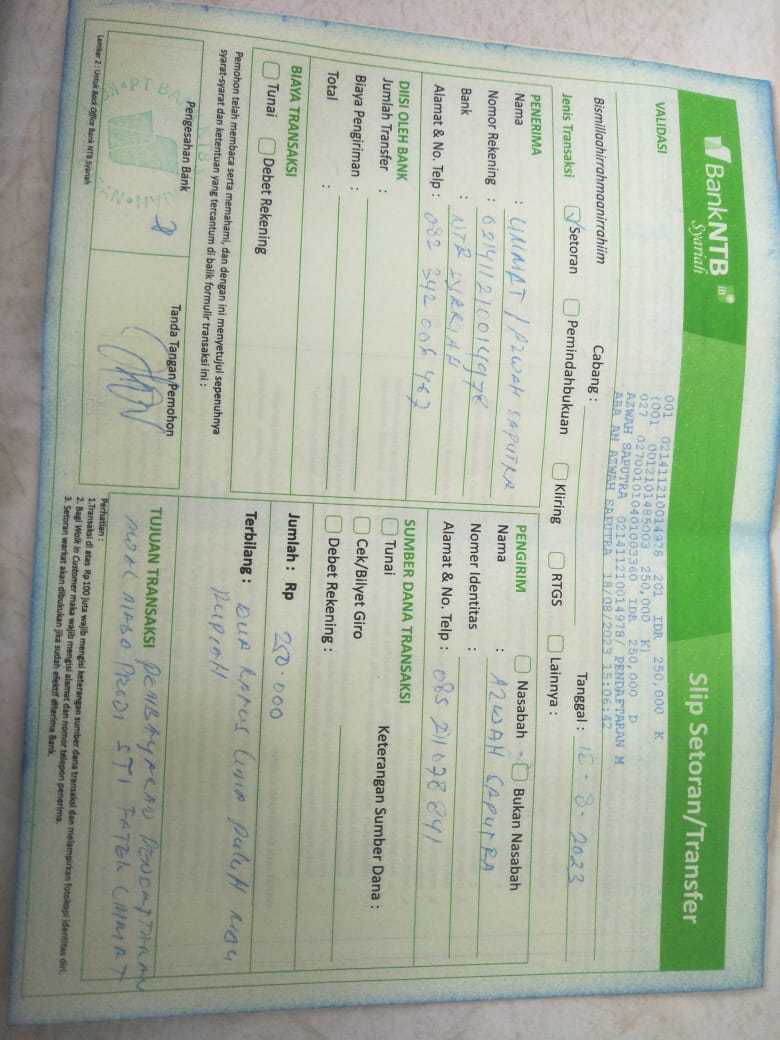 BankNTB
Syariah
Slip Setoran/Transfer
VALIDASI
001 0214112100149 8 201 IDR 250,000 K
(001 0012101485003 250,000 K)
027 0270010104010033 60 IDR 250,000 D
AZWAH SAPUTRA 0214112100149 78/ PENDAFTARAN M
ABA AN AZWAH SAPUTRA 18/08/2023 15:06:42
Bismillaahirrahmaanirrahiim
Cabang :
Tanggal : 18-8-2023
Jenis Transaksi
Setoran
Pemindahbukuan
Kliring
RTGS
Lainnya :
PENERIMA
Nama : UMMAT / AZWAH SAPUTRA
Nomor Rekening : 021411210014978
Bank : NTB SYARIAH
Alamat & No. Telp : 082 342 006 467
PENGIRIM
Nasabah
Bukan Nasabah
Nama : AZWAH SAPUTRA
Nomer Identitas :
Alamat & No. Telp : 085 211 078 841
DIISI OLEH BANK
Jumlah Transfer :
Biaya Pengiriman :
Total :
SUMBER DANA TRANSAKSI
Tunai
Cek/Bilyet Giro
Debet Rekening :
Keterangan Sumber Dana :
BIAYA TRANSAKSI
Tunai
Debet Rekening
Jumlah : Rp 250.000
Terbilang : DUA RATUS LIMA PULUH RIBU
RUPIAH
Pemohon telah membaca serta memahami, dan dengan ini menyetujui sepenuhnya
syarat-syarat dan ketentuan yang tercantum di balik formulir transaksi ini :
Pengesahan Bank
Tanda Tangan Pemohon
TUJUAN TRANSAKSI PEMBAYARAN PENDAFTARAN
MABA PRODI STI FATEK UMMAT
Lembar 2 : Untuk Back Office Bank NTB Syariah
Perhatian :
1.Transaksi di atas Rp 100 juta wajib mengisi keterangan sumber dana transaksi dan melampirkan fotokopi identitas diri.
2. Bagi Walk in Customer maka wajib mengisi alamat dan nomor telepon penerima.
3. Setoran warkat akan dibukukan jika sudah efektif diterima Bank.